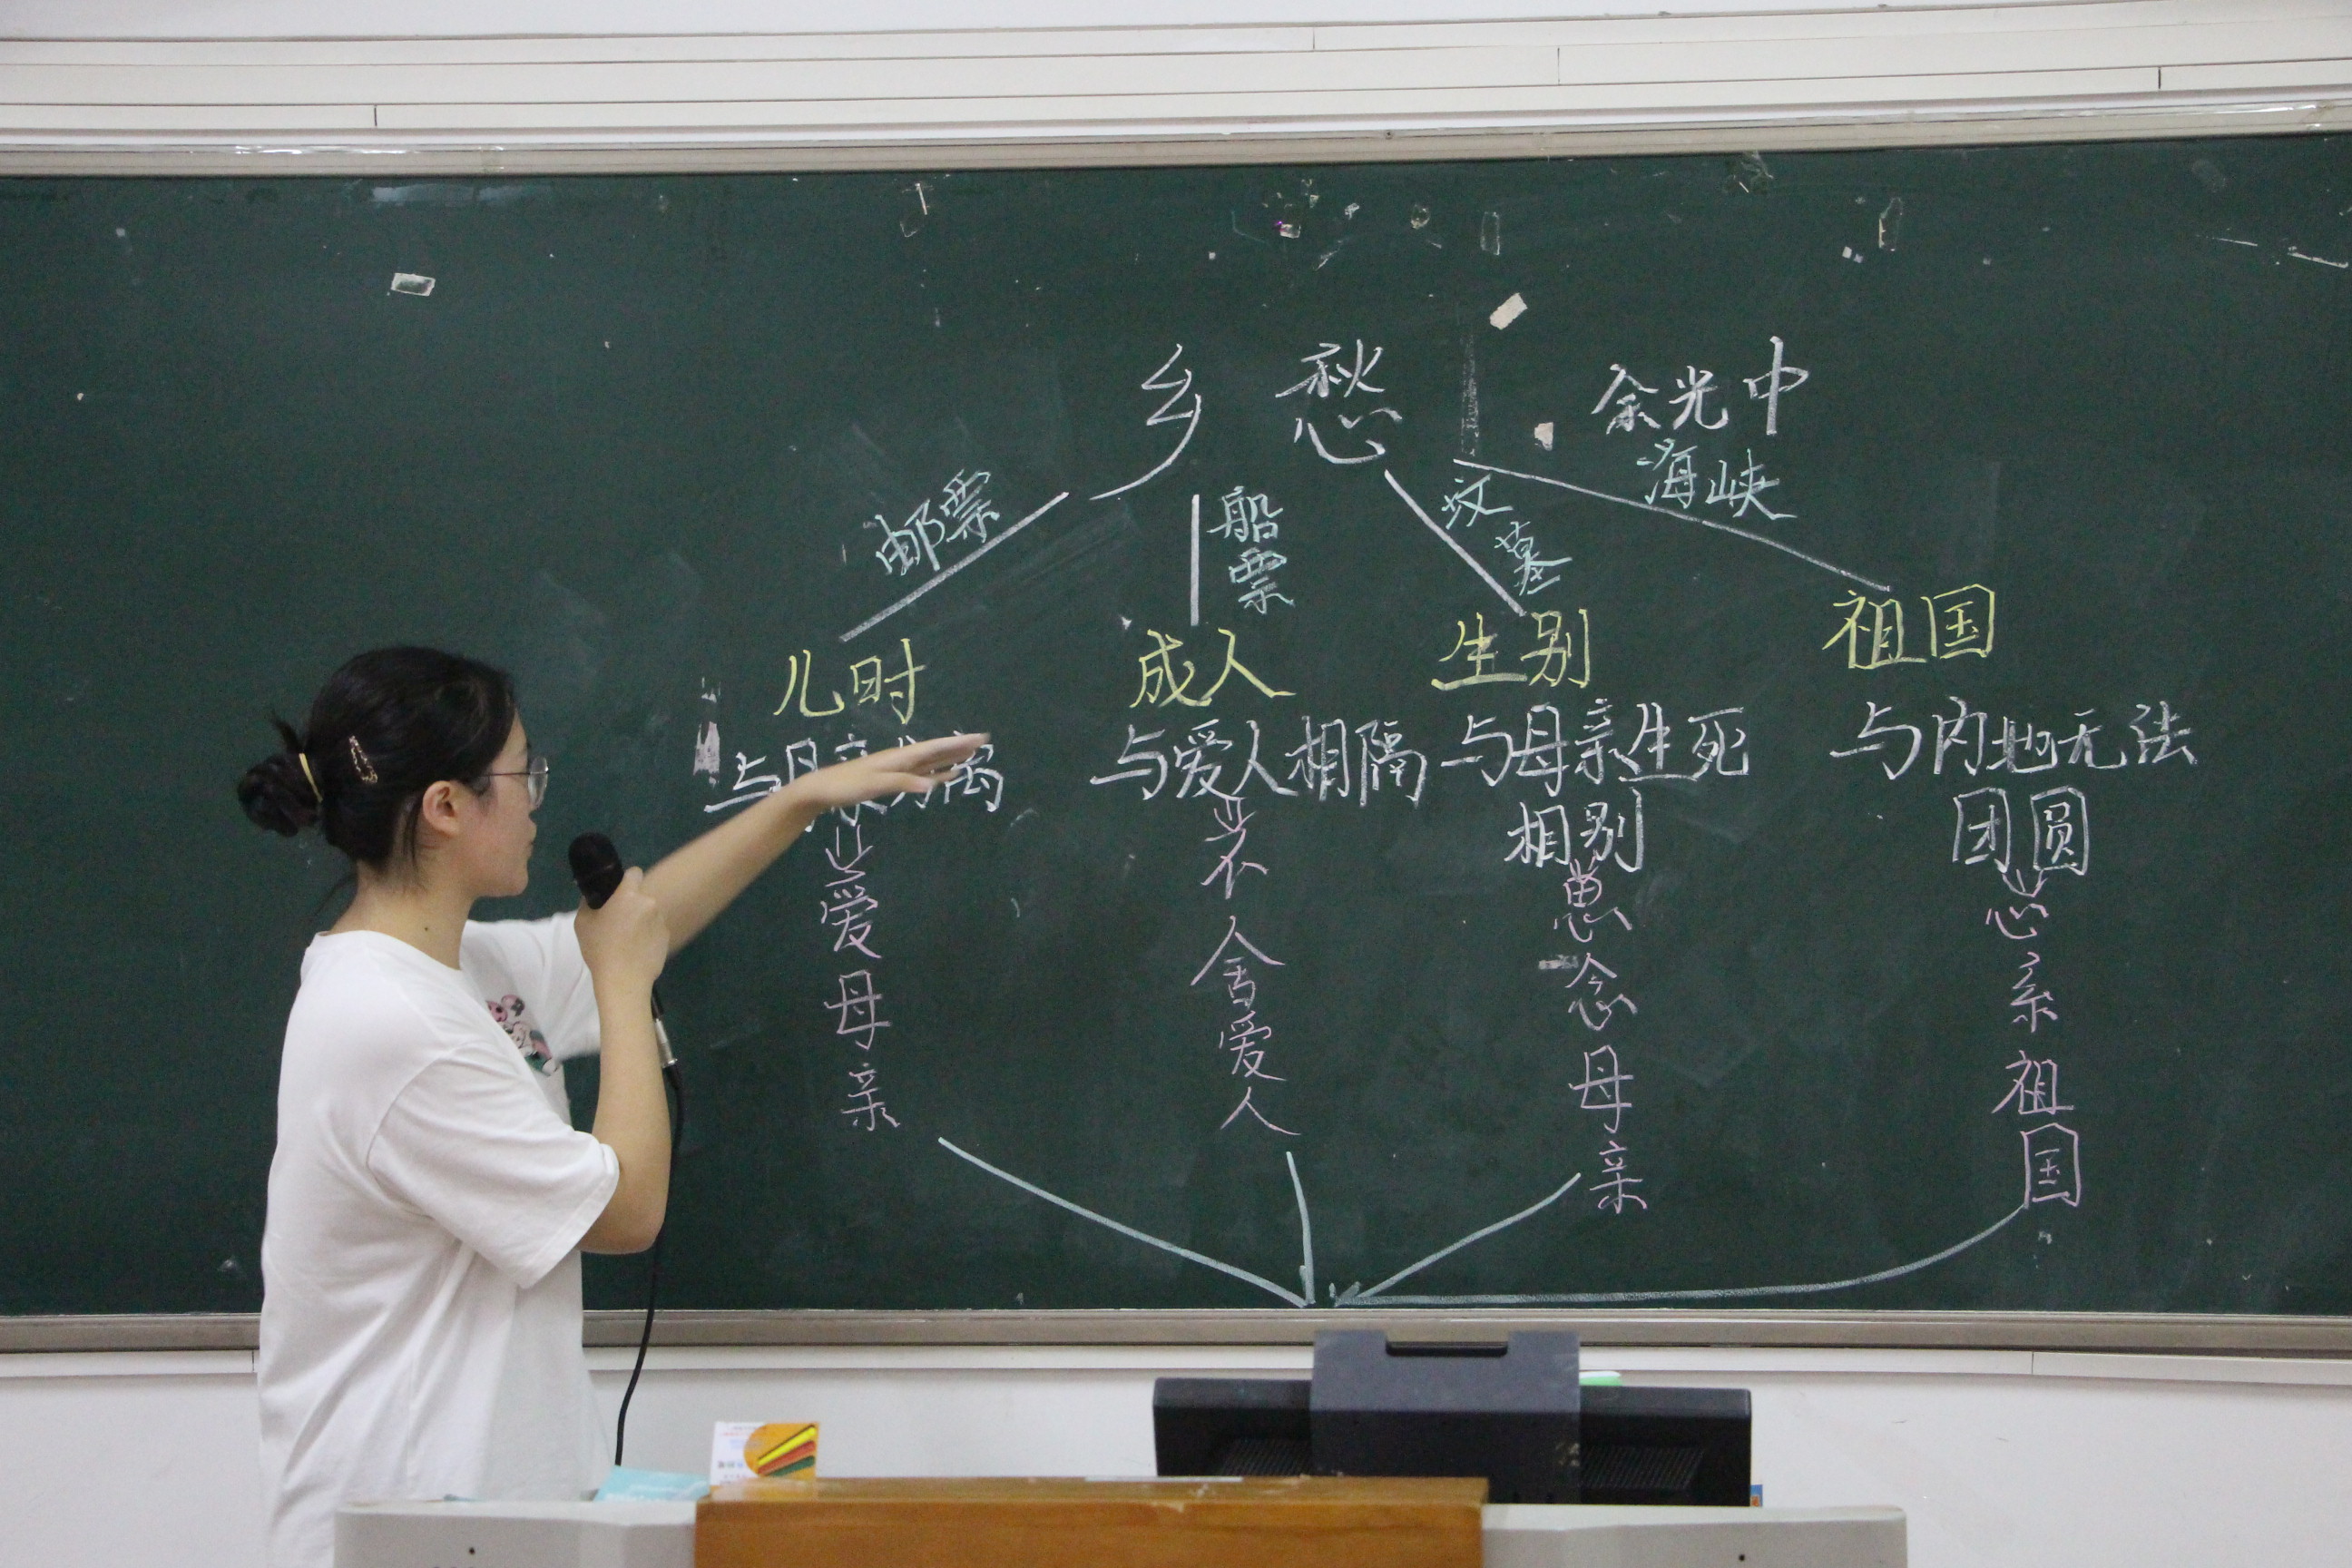 乡愁
余光中
邮票
船票
坟墓
海峡
儿时
成人
生别
祖国
与母亲分离
与爱人相隔
与母亲生死
相别
与内地无法
团圆
爱母亲
不舍爱人
思念母亲
心系祖国